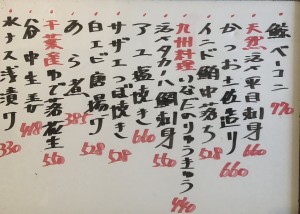 鯨ベーコン 770
天然活〆平目刺身 660
かつお土佐造り 660
インド鮪中落ち 528
九州料理りゅうきゅう 440
活〆鯛刺身 550
アユ塩焼き 660
サザエつぼ焼き 528
白エビ唐揚げ 528
あら煮 385
千葉産ゆで落花生 550
谷中生姜 418
水ナス浅漬け 330